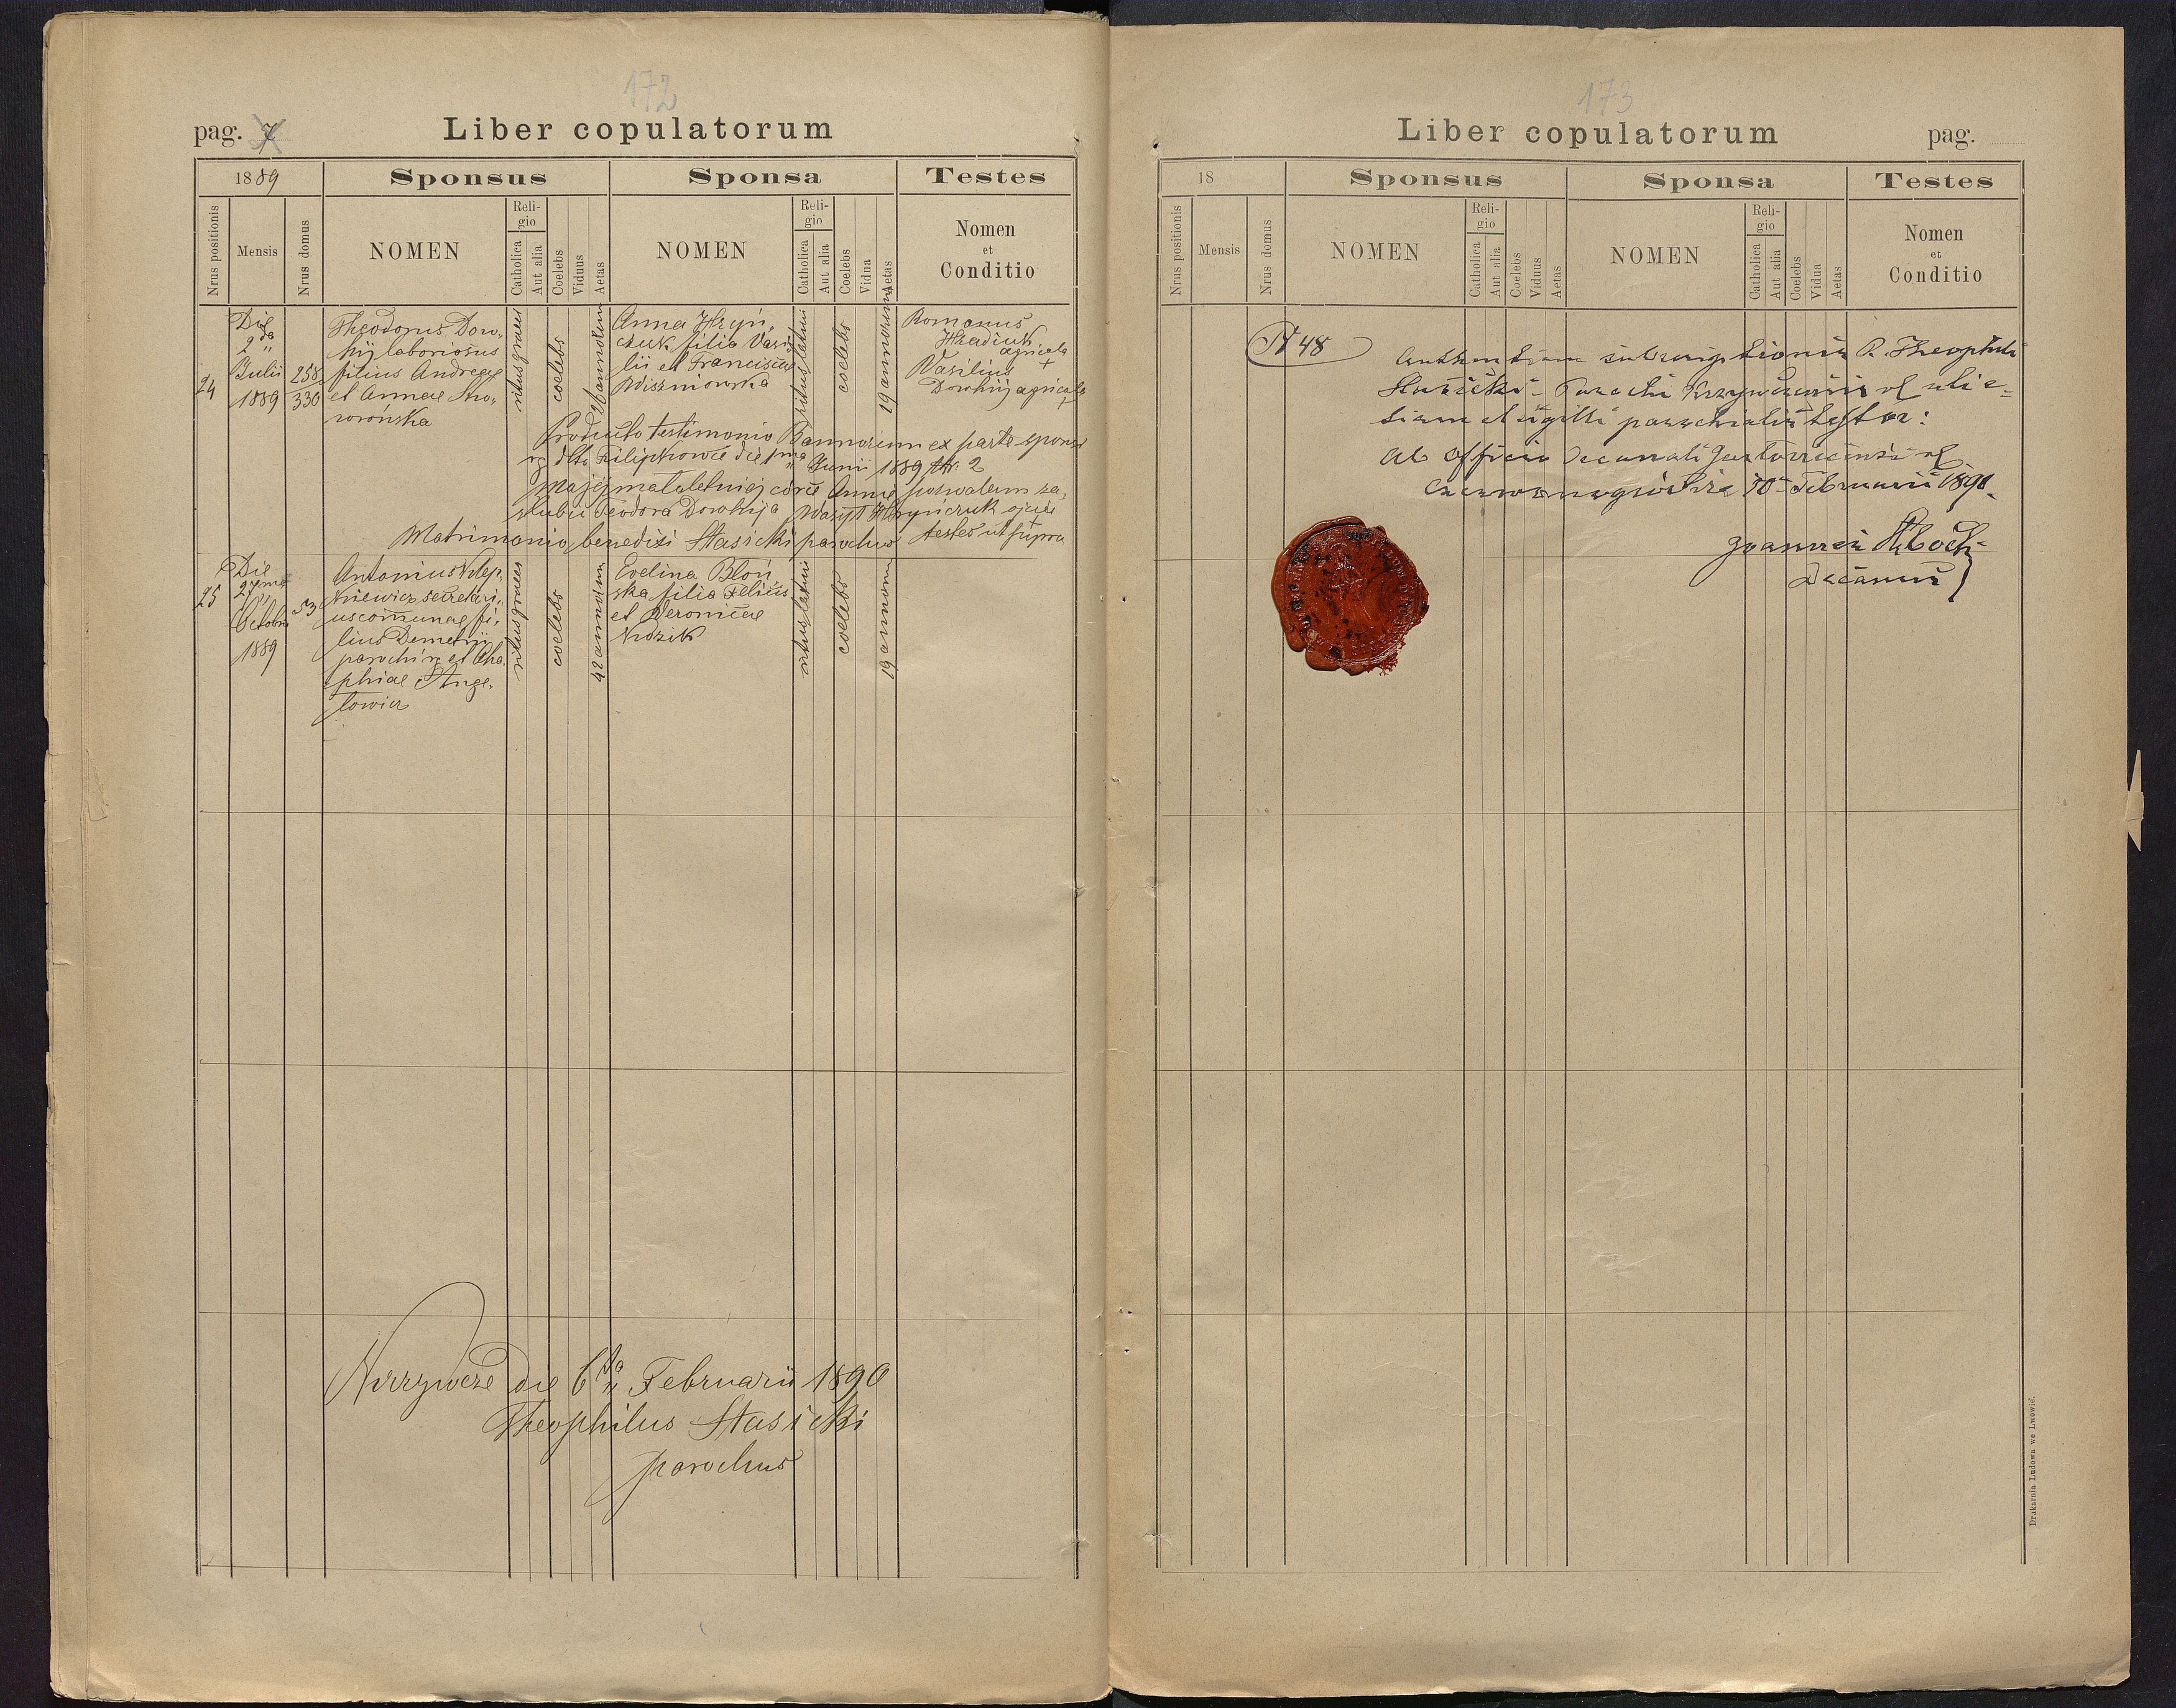 172
pag. 7
Liber copulatorum
1889
Sponsus
Sponsa
Testes
Nrus positionis
Mensis
Nrus domus
NOMEN
Religio
Catholica
Aut alia
Coelebs
Viduus
Aetas
NOMEN
Religio
Catholica
Aut alia
Coelebs
Vidua
Aetas
Nomen
et
Conditio
24
Die
2da
Julii
1889
258
330
Theodorus Dow,
hij laboriosus
filius Andreae
et Annae
ritus graeci
coelebs
annorum
Anna Hryń,
czuk filia Vasi
lii et Franciscae
Wiszniowska
ritus latini
coelebs
19 annorum
Romanus
Hladiuk
agricola
+
Vasilius
Dowhij agricola
+
Producto testimonio Bannorum ex parte sponsi
dto Filipkowce die 1ma Junii 1889 Nr. 2
Mojej małoletniej córce Annie pozwalam za,
ślubić Teodora Dowhija Wasyl Hryńczuk ojciec
Matrimonio benedixi Stasicki parochus testes ut supra
25
Die
27ma
Octobris
1889
53
Antonius Klep,
kiewicz secretari,
us comunae fi,
lius Demetrij
parochi et Aha,
phiae Ange,
lowicz
ritus graeci
coelebs
42 annorum
Evelina Błoń
ska filia Felicis
et Veronicae
Kozik
ritus latini
coelebs
19 annorum
Krzywcze die 6ta Februarii 1890
Theophilus Stasicki
parochus
173
Liber copulatorum
pag.
18
Sponsus
Sponsa
Testes
Nrus positionis
Mensis
Nrus domus
NOMEN
Religio
Catholica
Aut alia
Coelebs
Viduus
Aetas
NOMEN
Religio
Catholica
Aut alia
Coelebs
Vidua
Aetas
Nomen
et
Conditio
N 48
Authenticam subscriptionis R. Theophili
Stasicki Parochi
et sigilli parochialis testor:
Ab Officio Decanali
10 Februarii 1890
Joannes
Decanus
Drukarnia Ludowa we Lwowie.